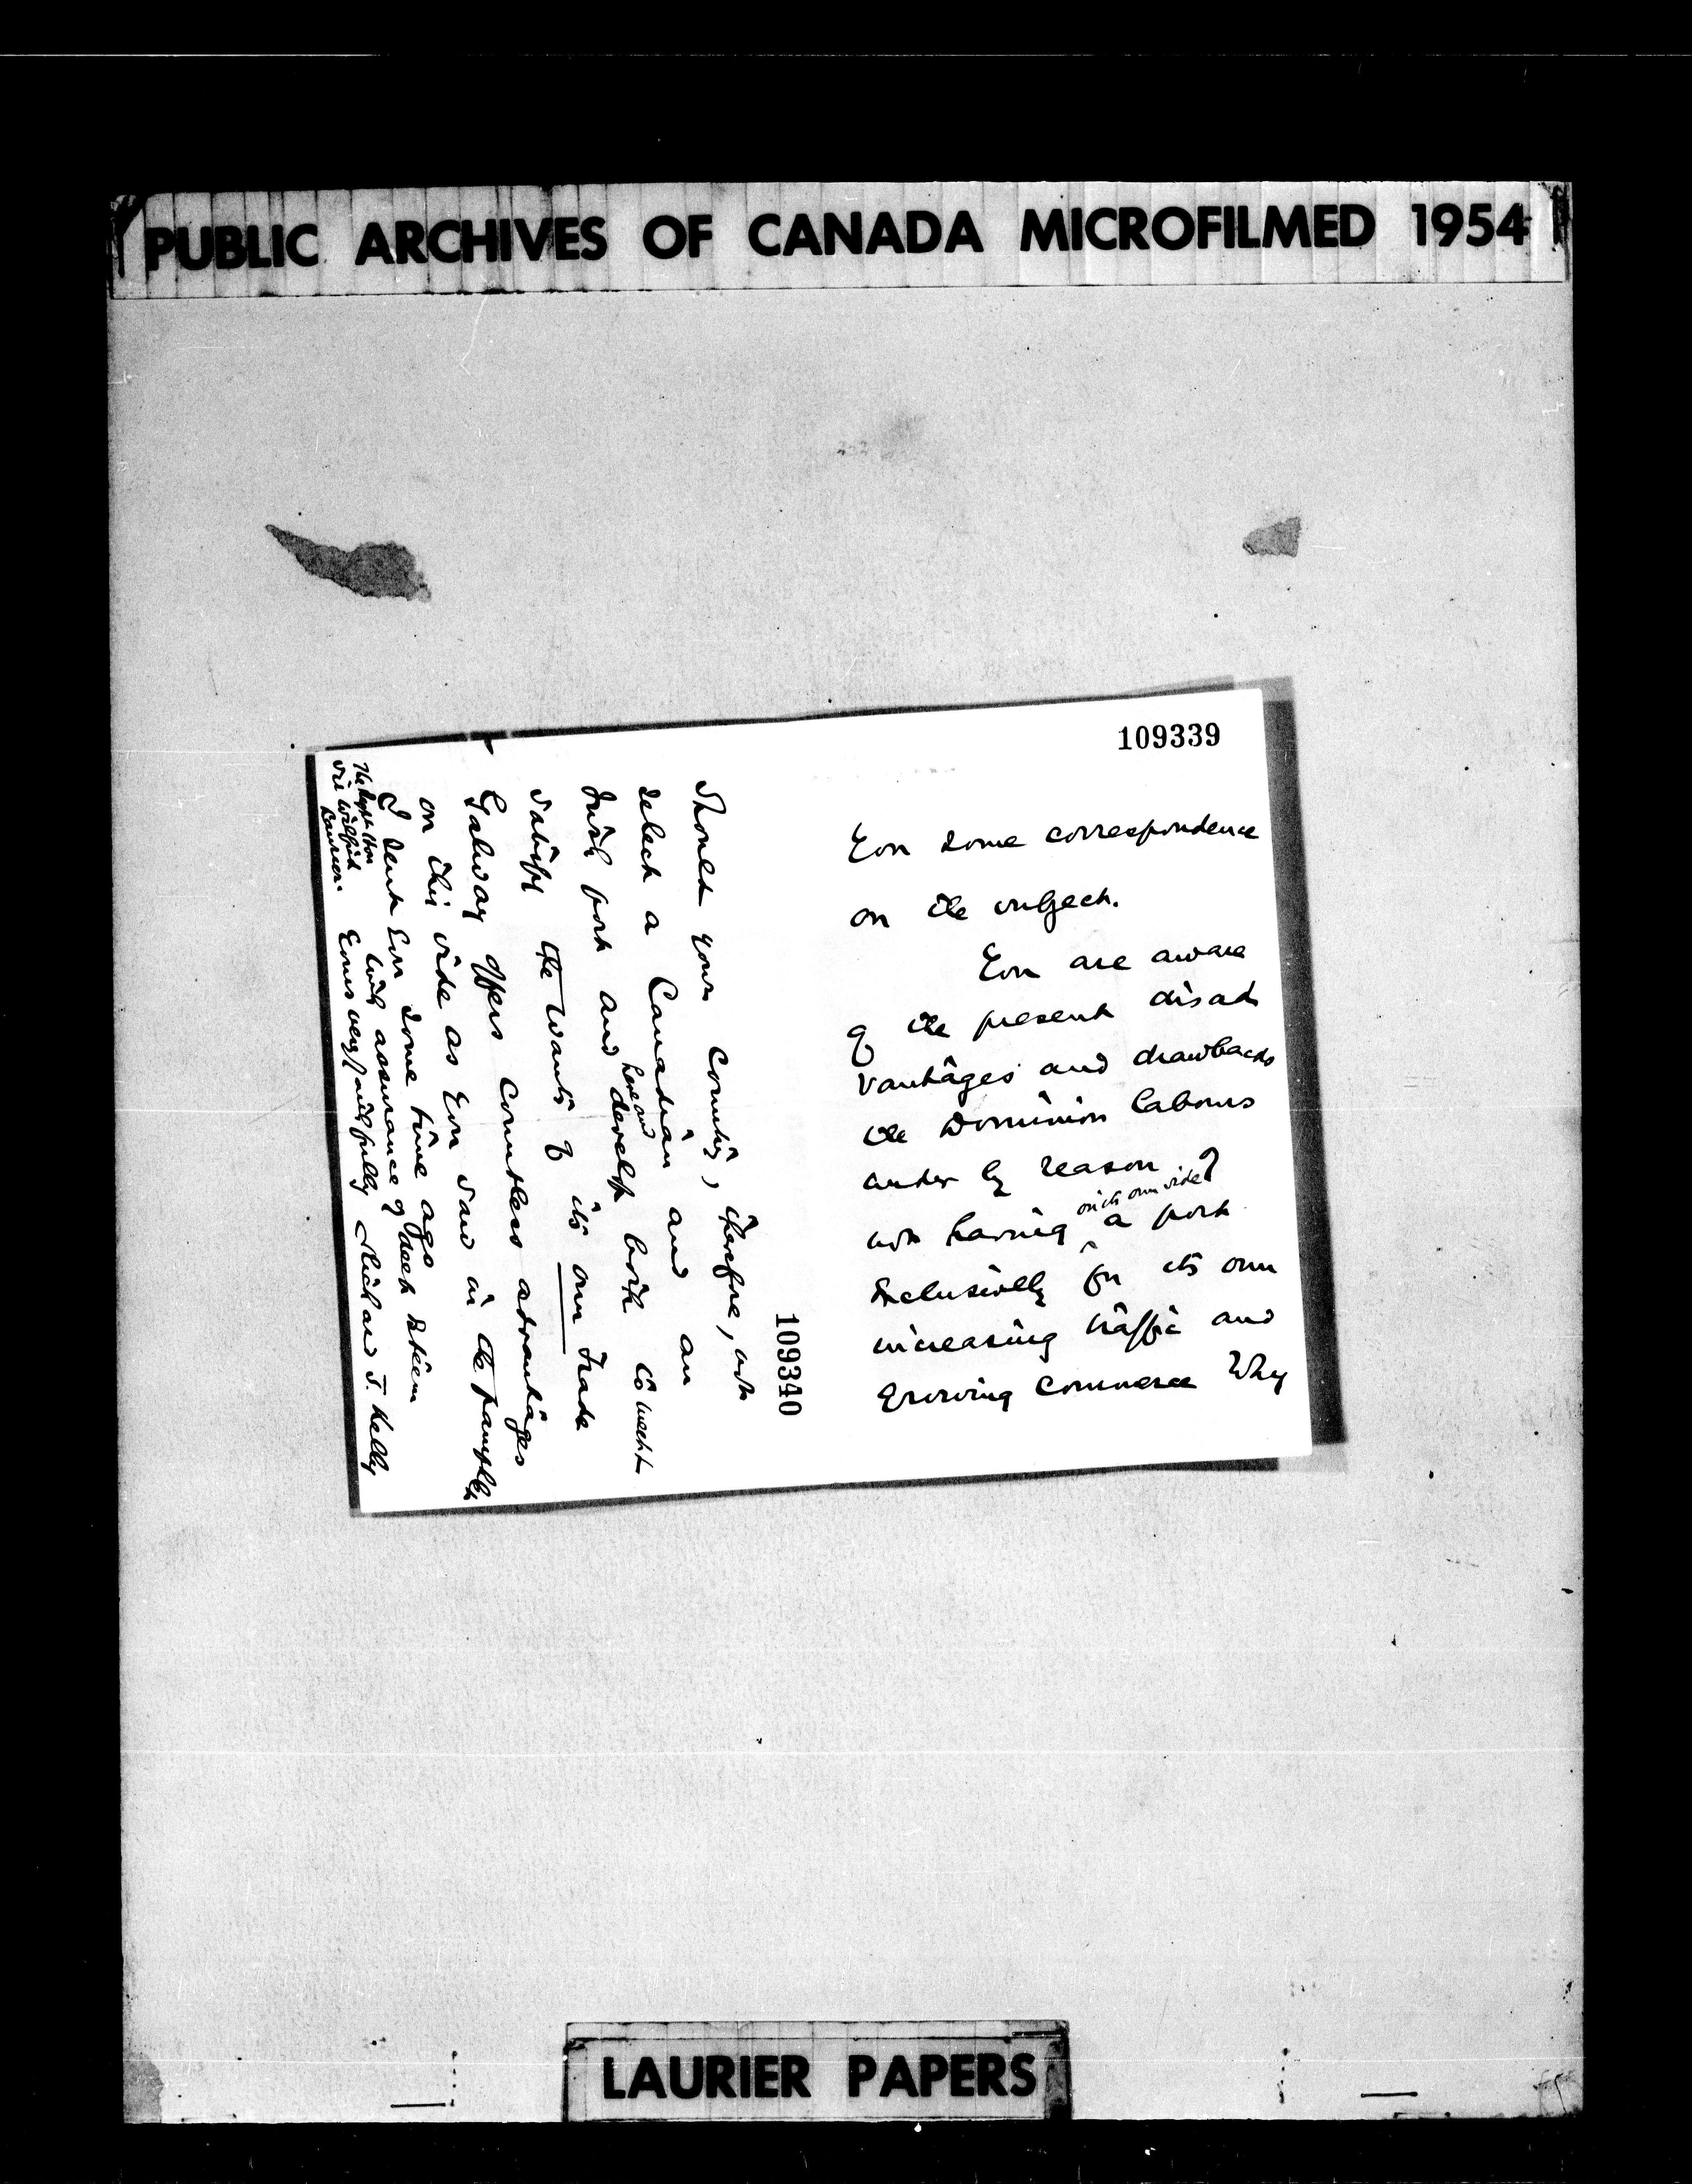 PUBLIC ARCHIVES OF CANADA MICROFILMED 1954
109339
You some correspondence
on the subject.
You are aware
of the present disad
vantages and drawbacks
the Dominion labours
under by reason of
on its own side
not having a port
Exclusively for its own
increasing traffic and
growing commerce Why
109340
should your country, therefore, not
select a Canadian and an
Irish port and develop both to meet &
here and
satisfy the wants of its own trade
Galway offers countless advantages
on this side as You saw in the pamphlet
I sent You some time ago
with assurance of deep esteem
Yours very faithfully Richard J. Kelly
The Right Hon
Sir Wilfrid
Laurier.
LAURIER PAPERS